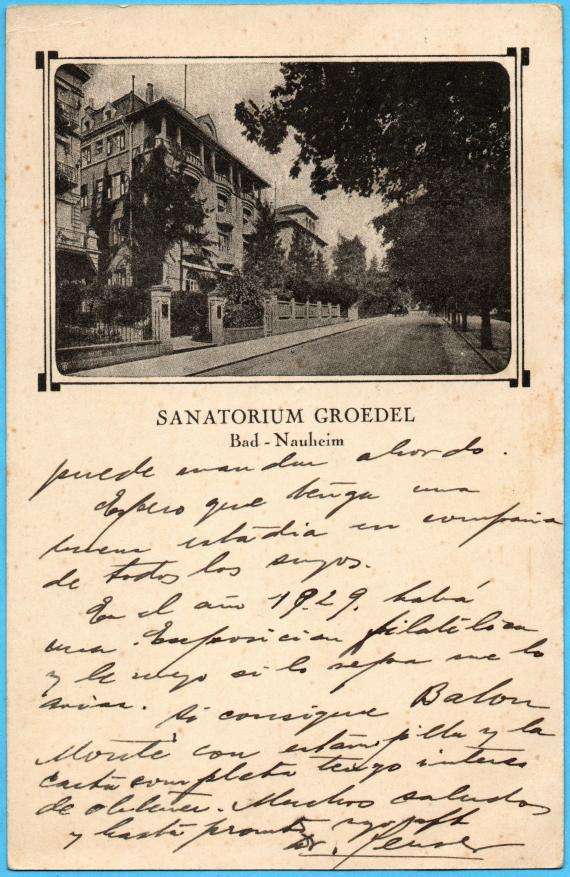 SANATORIUM GROEDEL
Bad - Nauheim
puede mandar abordo.
Espero que tenga una
buena estadia en compañia
de todos los suyos.
En el año 1929, habá
una Exposicion filatélica
y le ruego si lo sepa me lo
avisa. Si consigue Balon
Monté con estampilla y la
carta completa tengo interes
de obtener. Muchos saludos
y hasta pronto
Dr.